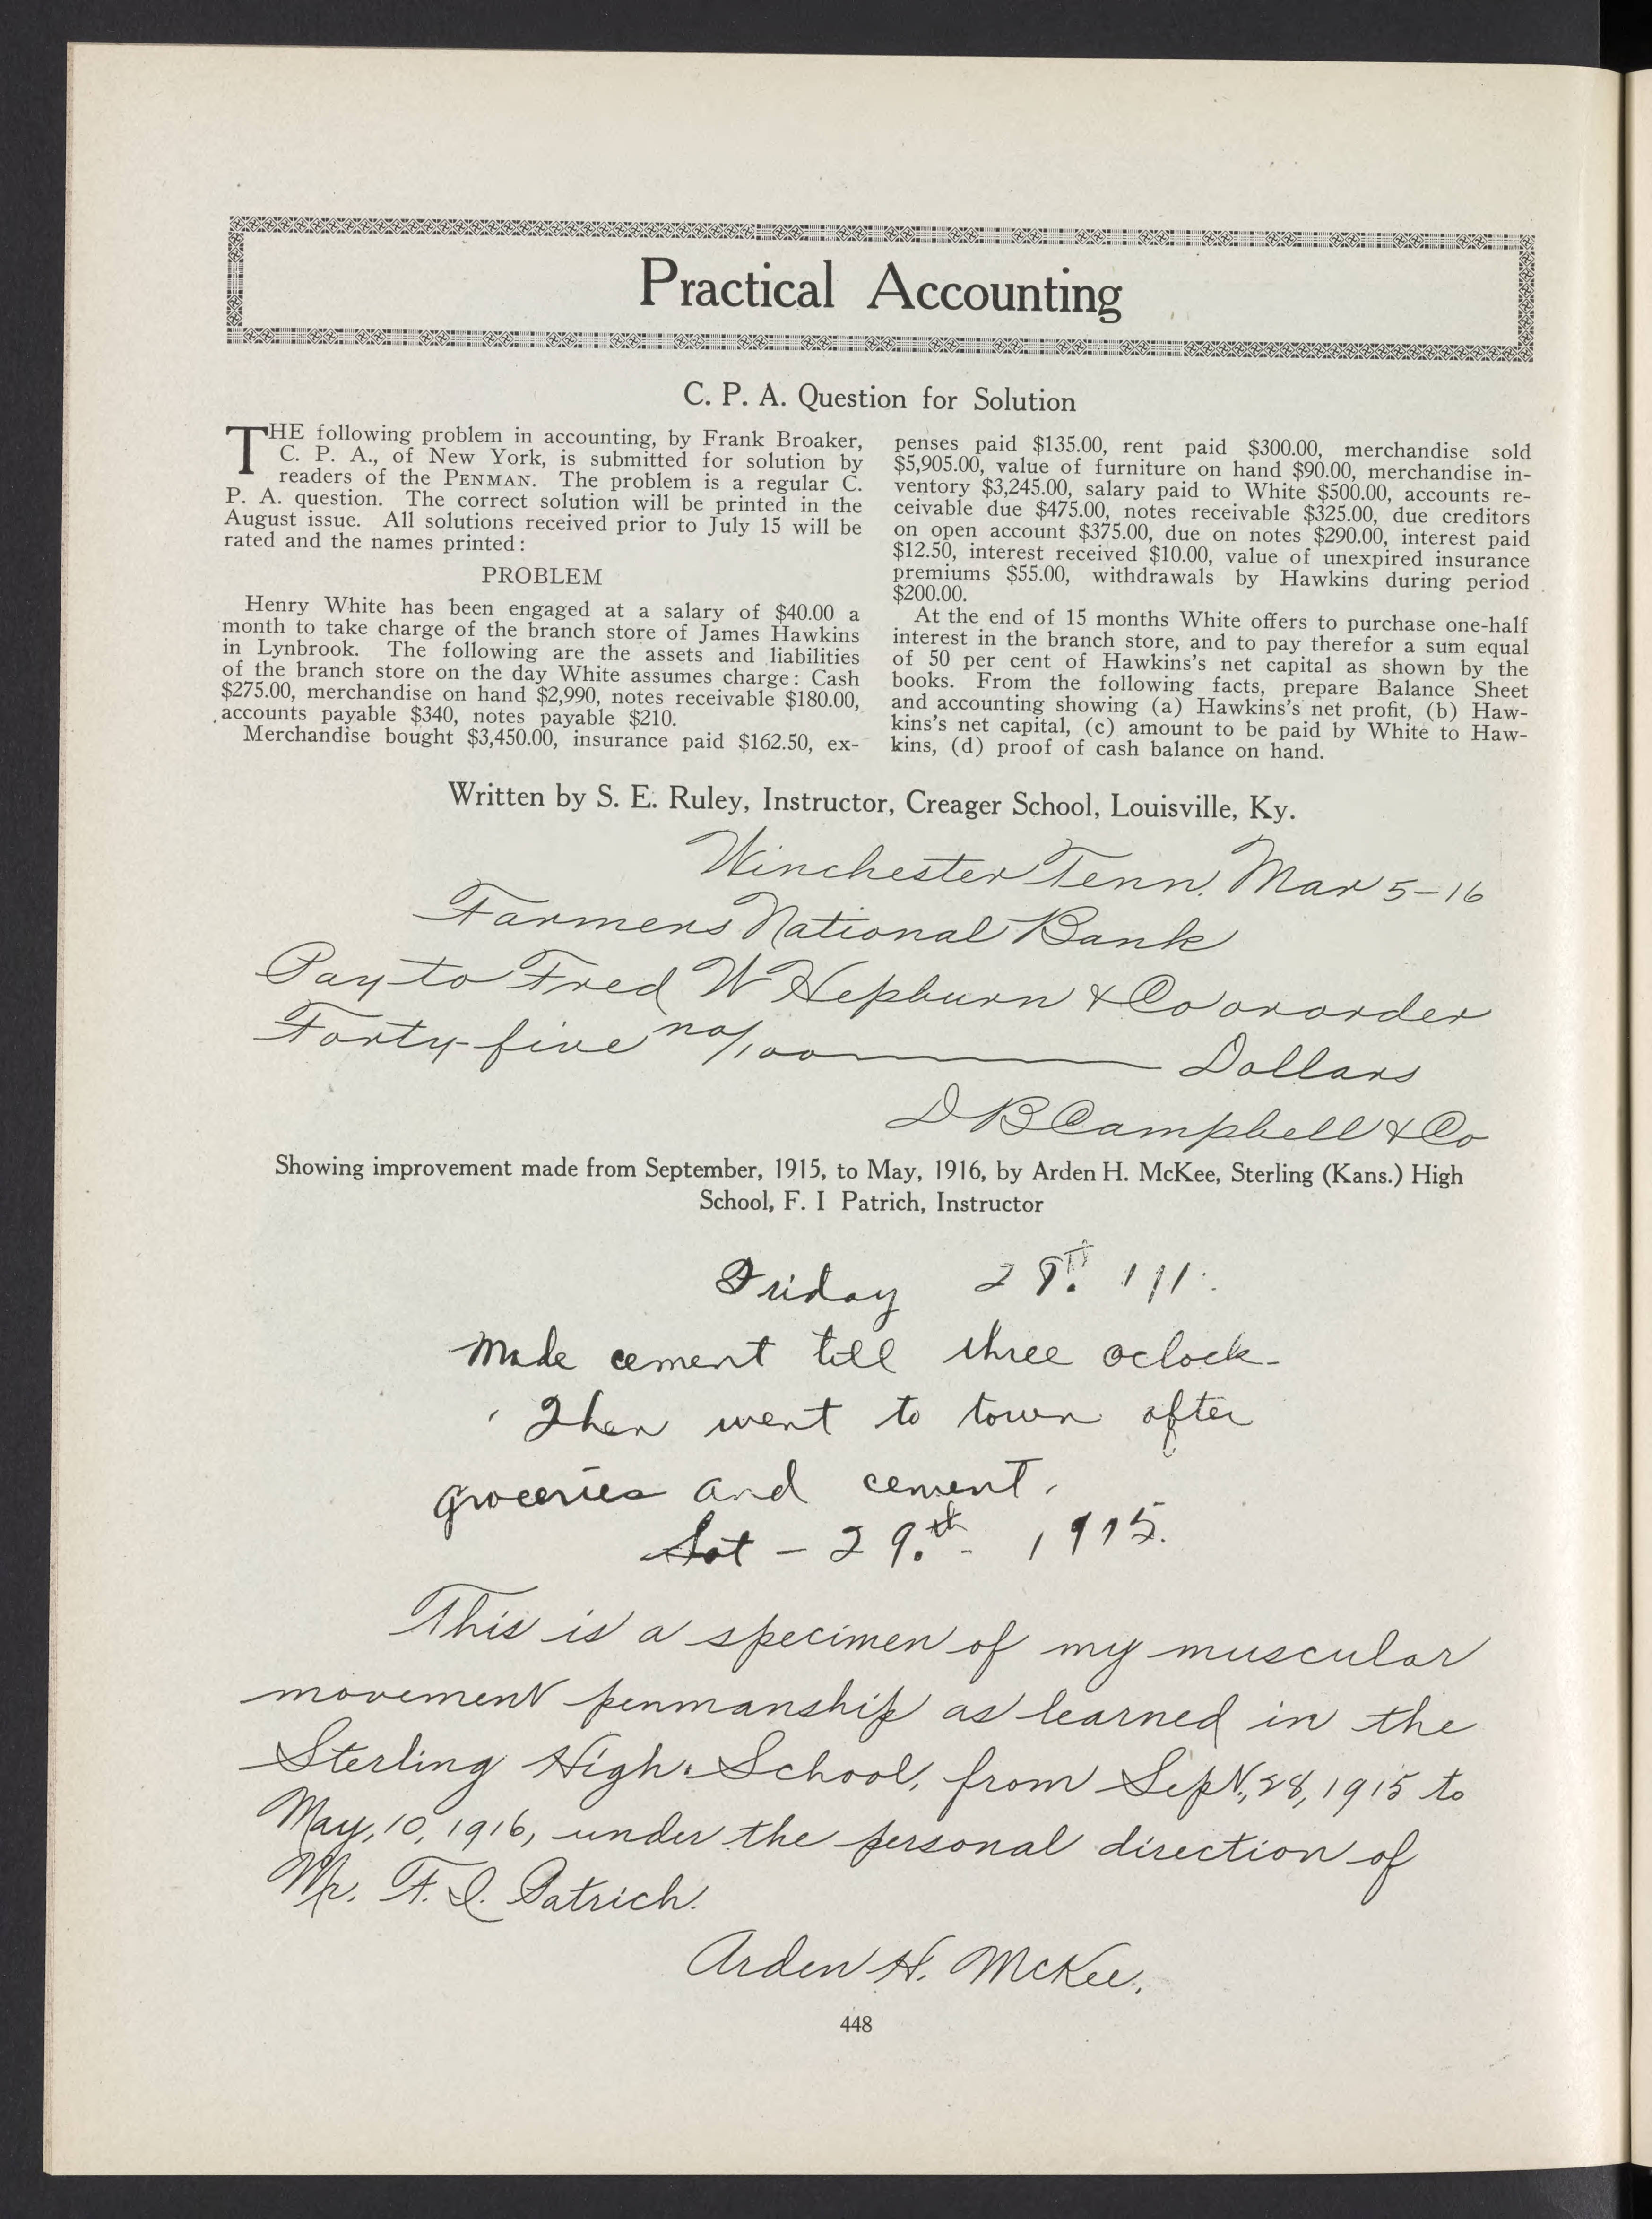 Practical Accounting
C. P. A. Question for Solution
THE following problem in accounting, by Frank Broaker,
C. P. A., of New York, is submitted for solution by
readers of the PENMAN. The problem is a regular C.
P. A. question. The correct solution will be printed in the
August issue. All solutions received prior to July 15 will be
rated and the names printed:
PROBLEM
Henry White has been engaged at a salary of $40.00 a
month to take charge of the branch store of James Hawkins
in Lynbrook. The following are the assets and liabilities
of the branch store on the day White assumes charge: Cash
$275.00, merchandise on hand $2,990, notes receivable $180.00,
accounts payable $340, notes payable $210.
Merchandise bought $3,450.00, insurance paid $162.50, ex-
penses paid $135.00, rent paid $300.00, merchandise sold
$5,905.00, value of furniture on hand $90.00, merchandise in-
ventory $3,245.00, salary paid to White $500.00, accounts re-
ceivable due $475.00, notes receivable $325.00, due creditors
on open account $375.00, due on notes $290.00, interest paid
$12.50, interest received $10.00, value of unexpired insurance
premiums $55.00, withdrawals by Hawkins during period
$200.00.
At the end of 15 months White offers to purchase one-half
interest in the branch store, and to pay therefor a sum equal
of 50 per cent of Hawkins's net capital as shown by the
books. From the following facts, prepare Balance Sheet
and accounting showing (a) Hawkins's net profit, (b) Haw-
kins's net capital, (c) amount to be paid by White to Haw-
kins, (d) proof of cash balance on hand.
Written by S. E. Ruley, Instructor, Creager School, Louisville, Ky.
Winchester Tenn. Mar 5-16
Farmers National Bank
Pay to Fred W Hepburn & Co or order
Forty-five no/100 Dollars
D B Campbell & Co
Showing improvement made from September, 1915, to May, 1916, by Arden H. McKee, Sterling (Kans.) High
School, F. I Patrich, Instructor
Friday 28th.
Made cement till three oclock-
Then went to town after
groceries and cement.
Sat - 29.th - 1915.
This is a specimen of my muscular
movement penmanship as learned in the
Sterling High School, from Sept, 28, 1915 to
May, 10, 1916, under the personal direction of
Mr. F. I. Patrich.
Arden H. McKee.
448